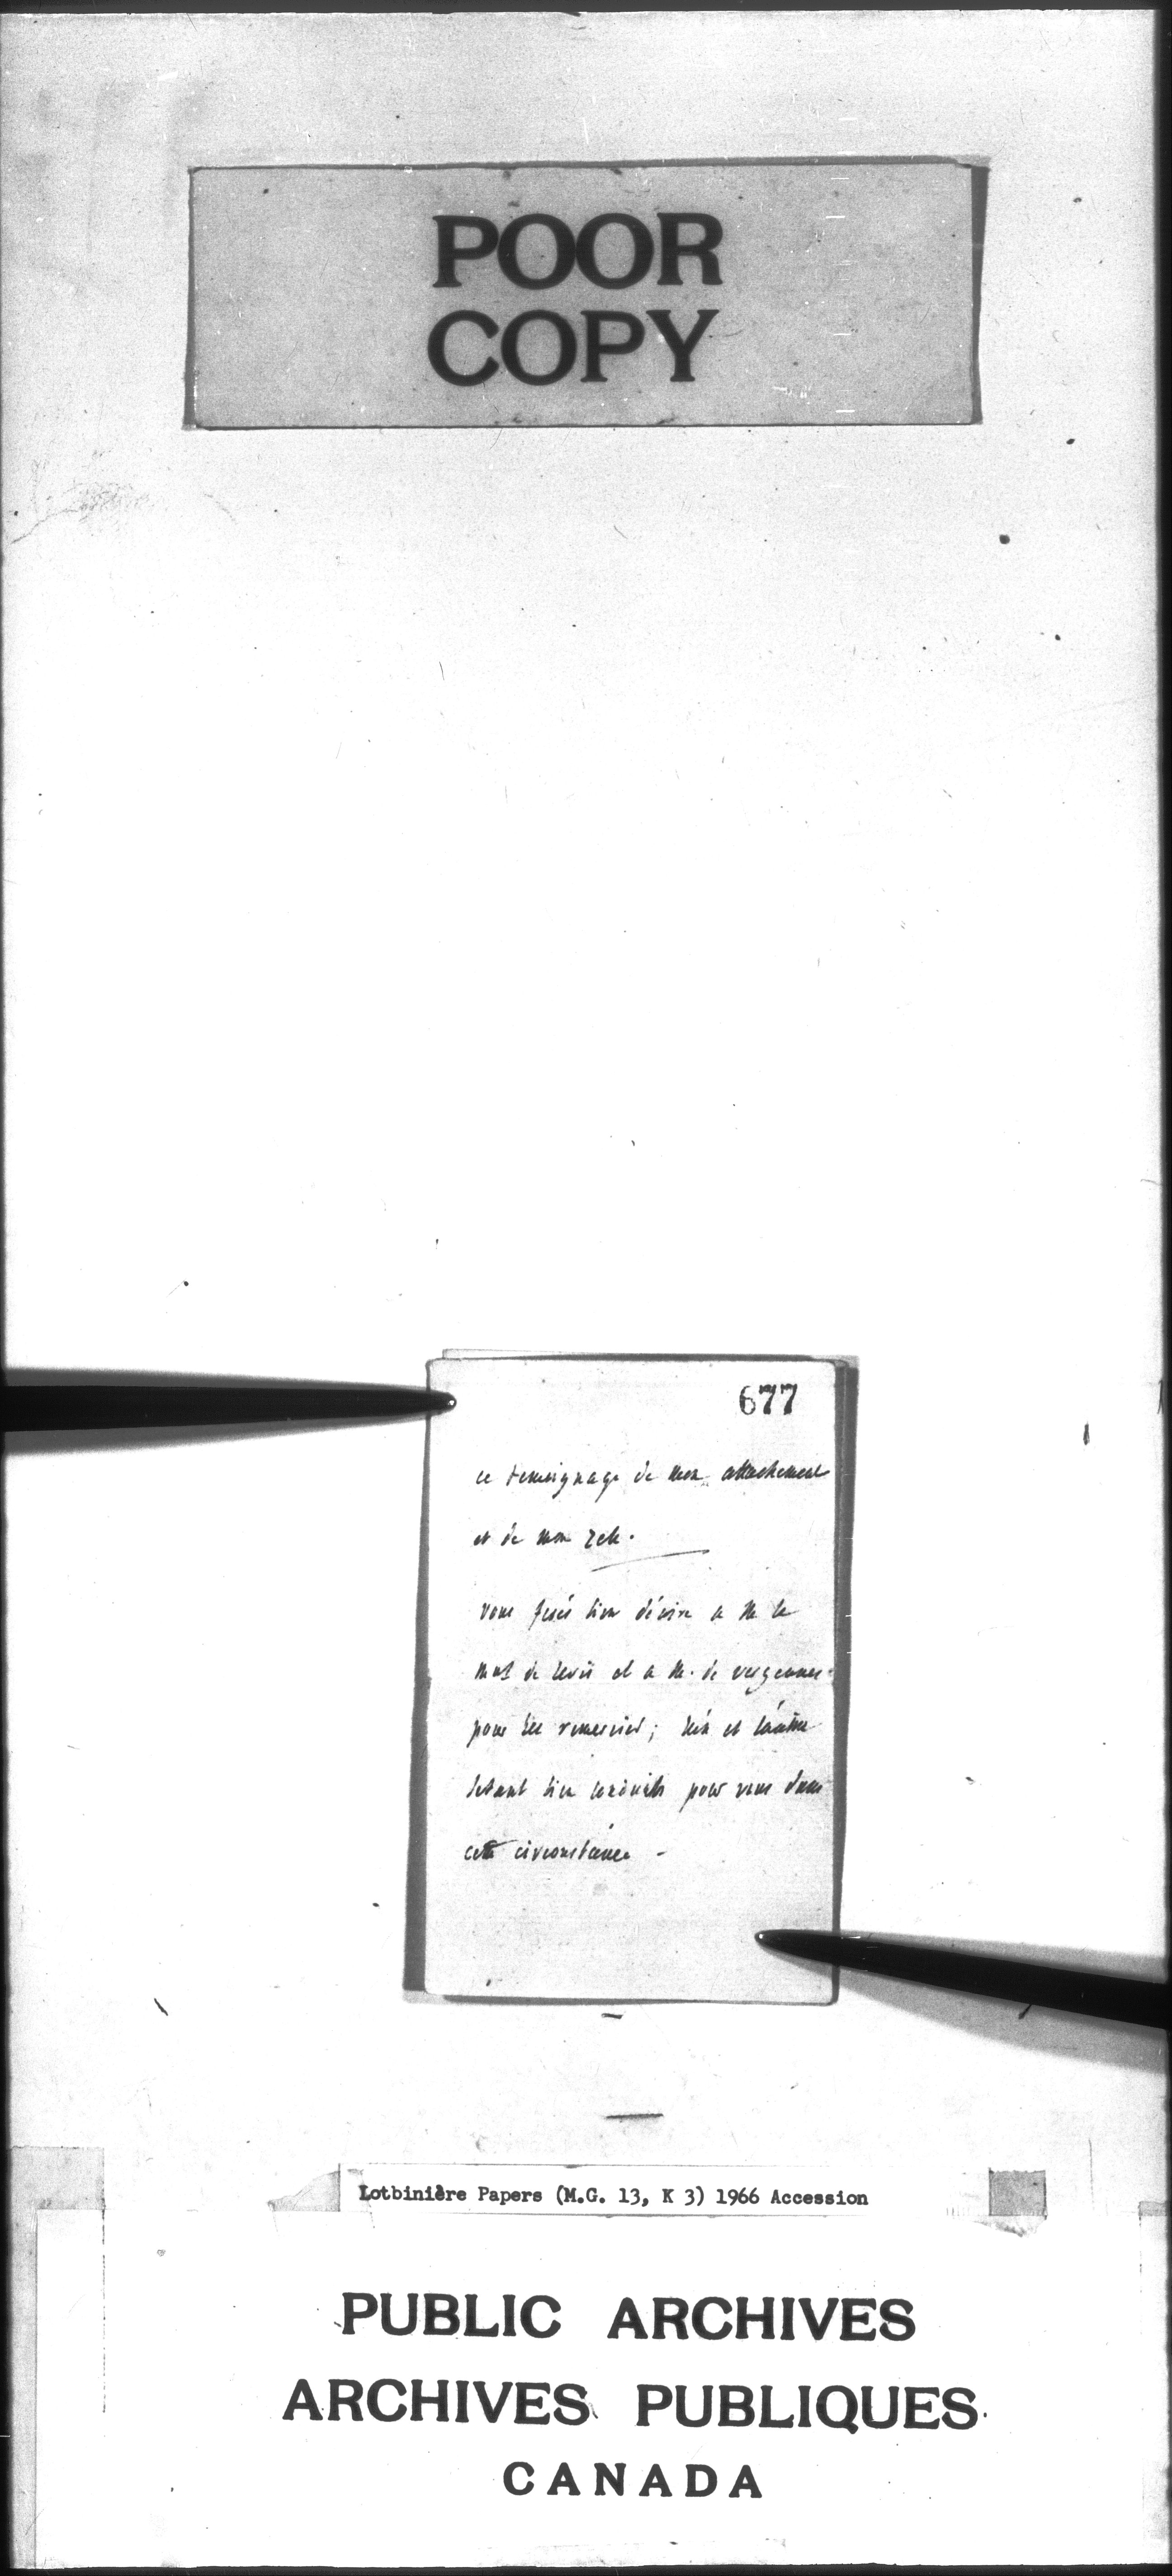 POOR
COPY
677
ce temoignage de mon attachement
et de mon zele.
vous ferés bien d'écrire a M. le
de Levis et a M. de vergennes
pour les remercier; l'un et l'autre
bien conduits pour vous dans
cette circonstance -
Lotbinière Papers (M.G. 13, K 3) 1966 Accession
PUBLIC ARCHIVES
ARCHIVES PUBLIQUES
CANADA